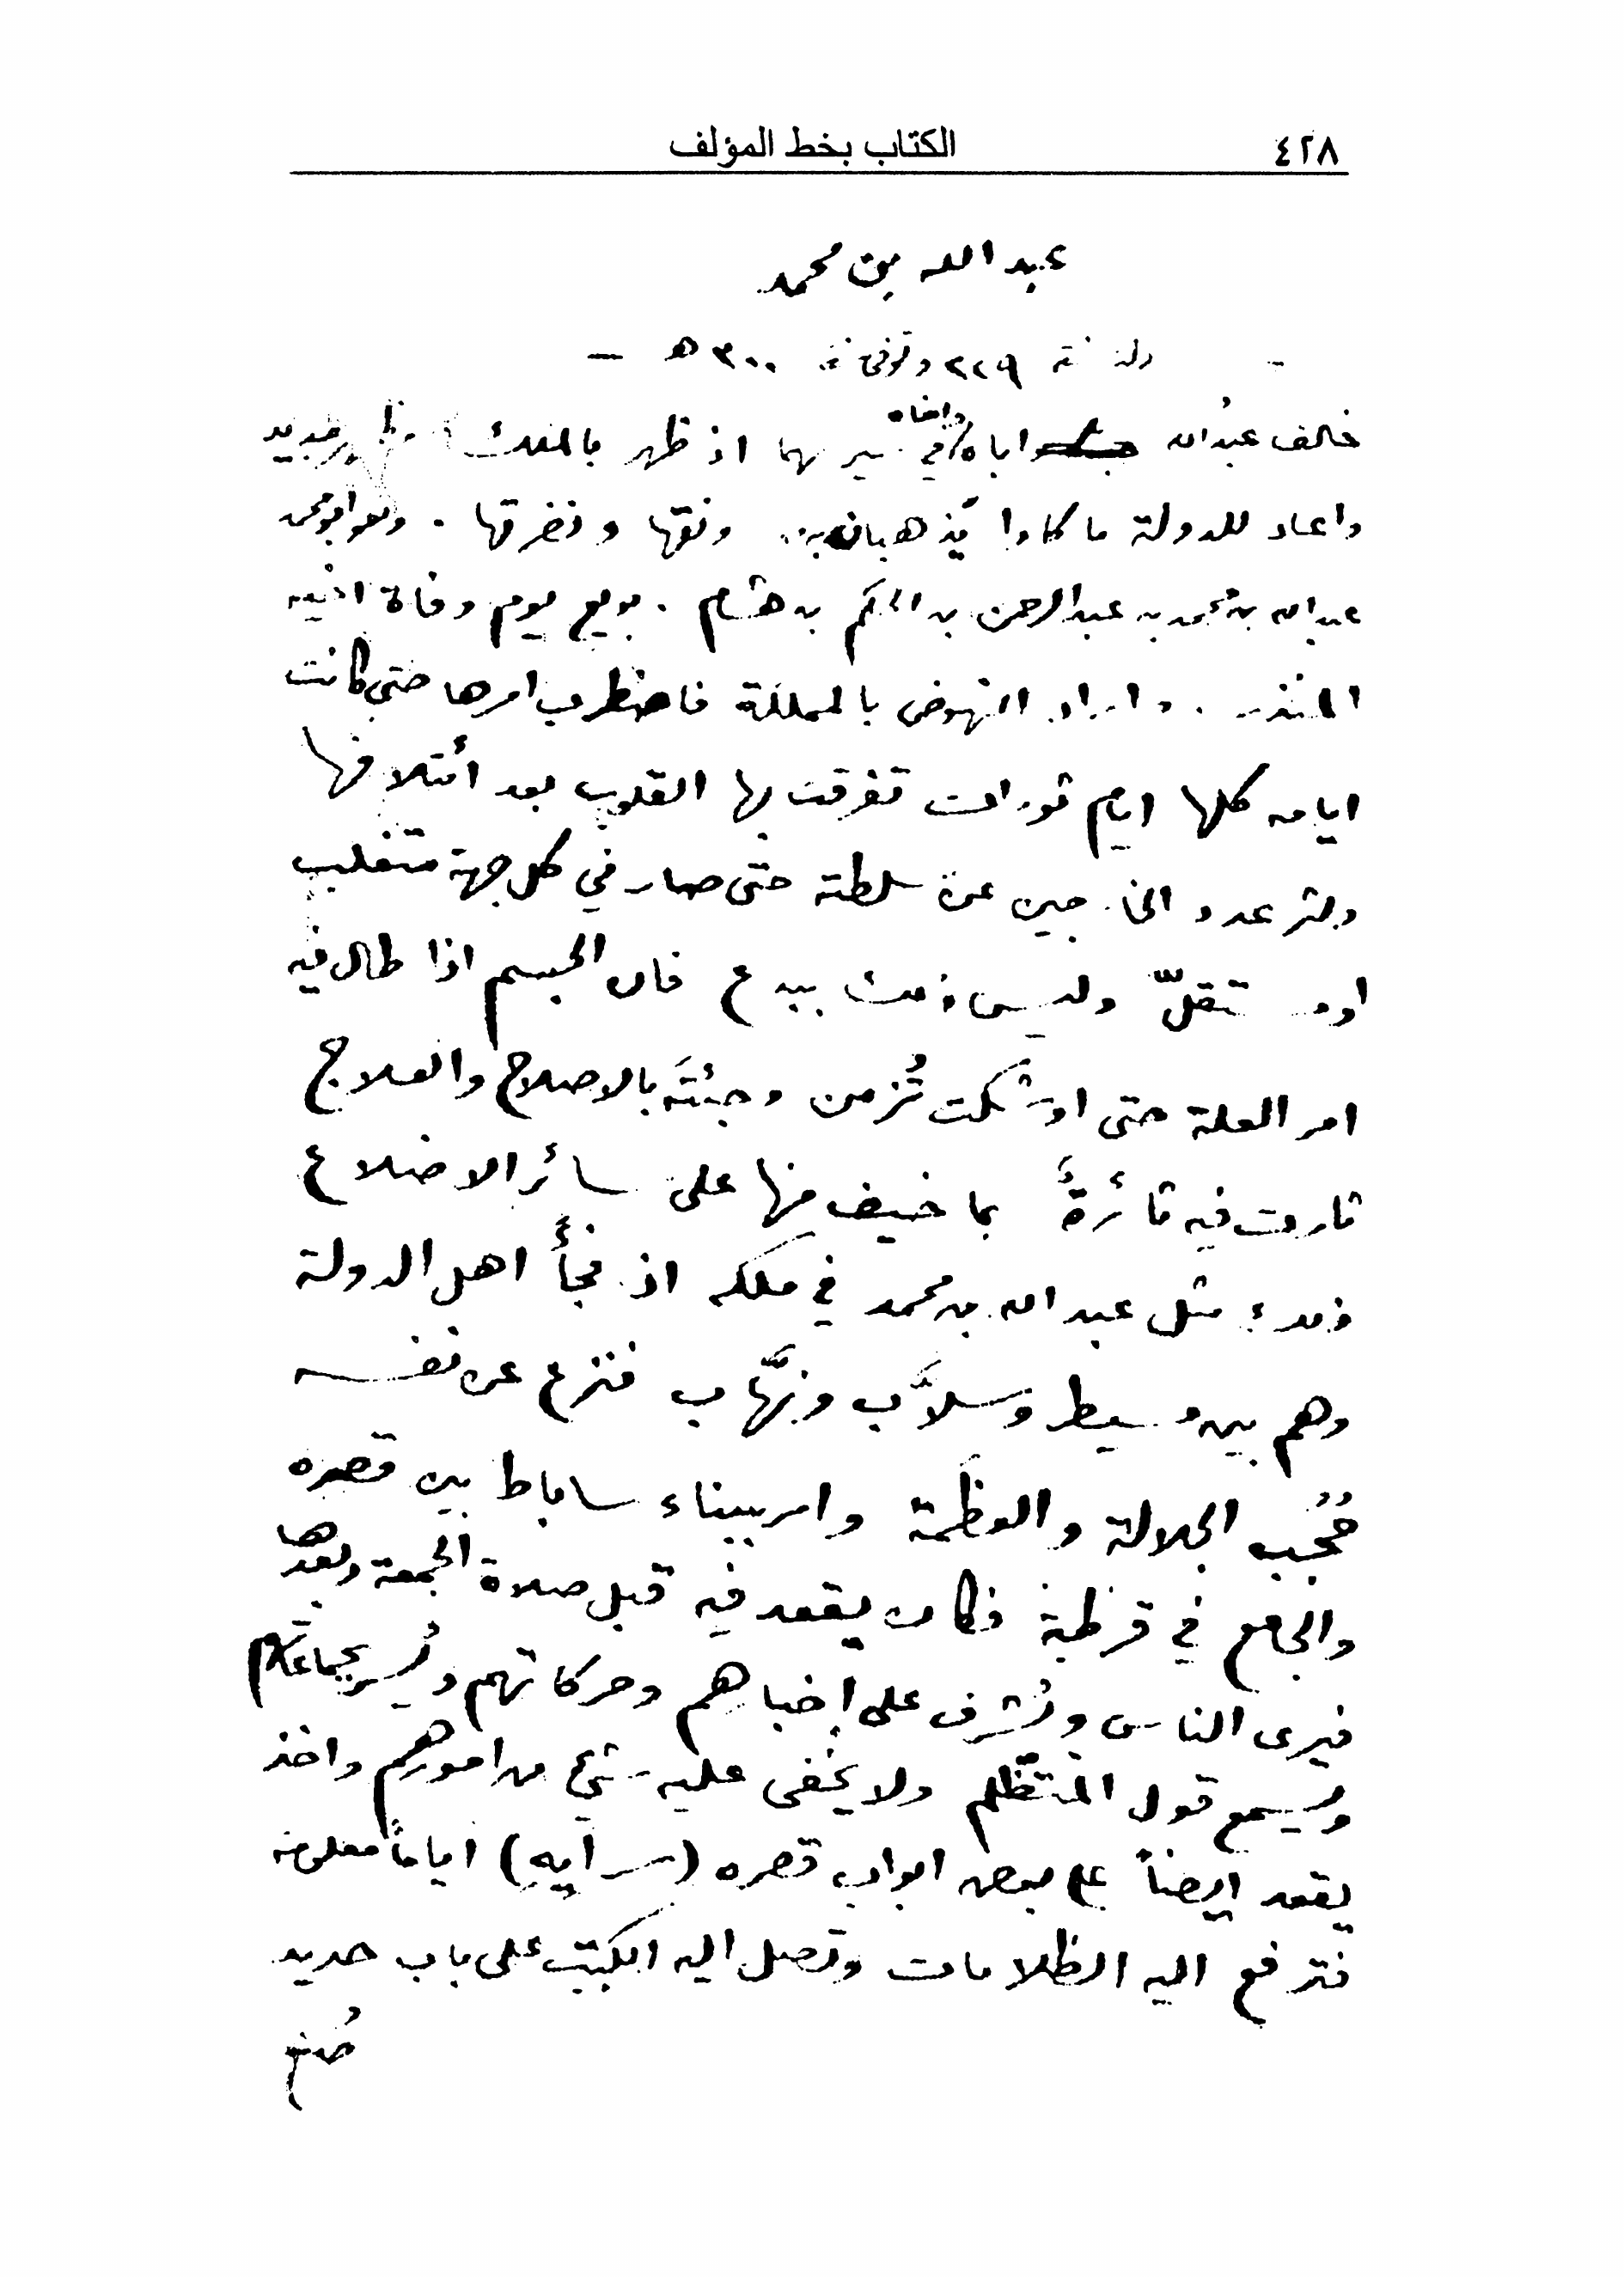 ٤٢٨
الكتاب بخط المؤلف
عبد الله بن محمد
— ولد سنة ٢٢٩ وتوفي سنة ٣٠٠ هـ —
خالف عبدالله اباه واخاه في سيرتهما اذ ظهر بالملك بمظهر جديد
واعاد للدولة ما كادا يذهبان به من رونقها ونضرتها . وهو ابو محمد
عبدالله بن محمد بن عبدالرحمن بن الحكم بن هشام . بويع يوم وفاة اخيه
المنذر . واراد النهوض بالمملكة فاضطرب امرها حتى كانت
ايامه كلها ايام ثورات تفرقت بها القلوب بعد أئتلافها
وكثر عدد الخارجين عن سلطته حتى صار في كل جهة متغلب
او مستقلّ وليس ذلك ببدع فان الجسم اذا طال فيه
امر العلة حتى اوشكت تُزمن وجئتَه بالاصلاح والعلاج
ثارت فيه ثائرةً بما خيف منها على سائر الاضلاع
ذلك مثل عبد الله بن محمد في ملكه اذ فجأ اهل الدولة
وهم بين وسيط وسلاَّب ونهَّاب فنزع عن نفسه
حُجُب الجلالة والعظَمة وامر ببناء ساباط بين قصره
والجامع في قرطبة فكان يقعد فيه قبل صلاة الجمعة وبعدها
فيرى الناس ويُشرف على اخبارهم وحركاتهم ويُسر بجماعاتهم
ويسمع قول المتظلم ولا يخفى عليه شيء من امورهم واخذ
يقعد ايضاً على بعض ابواب قصره (سرايه) اياماً معلومة
فترفع اليه الظلامات وتصل اليه الكتب على باب حديد
صُنع